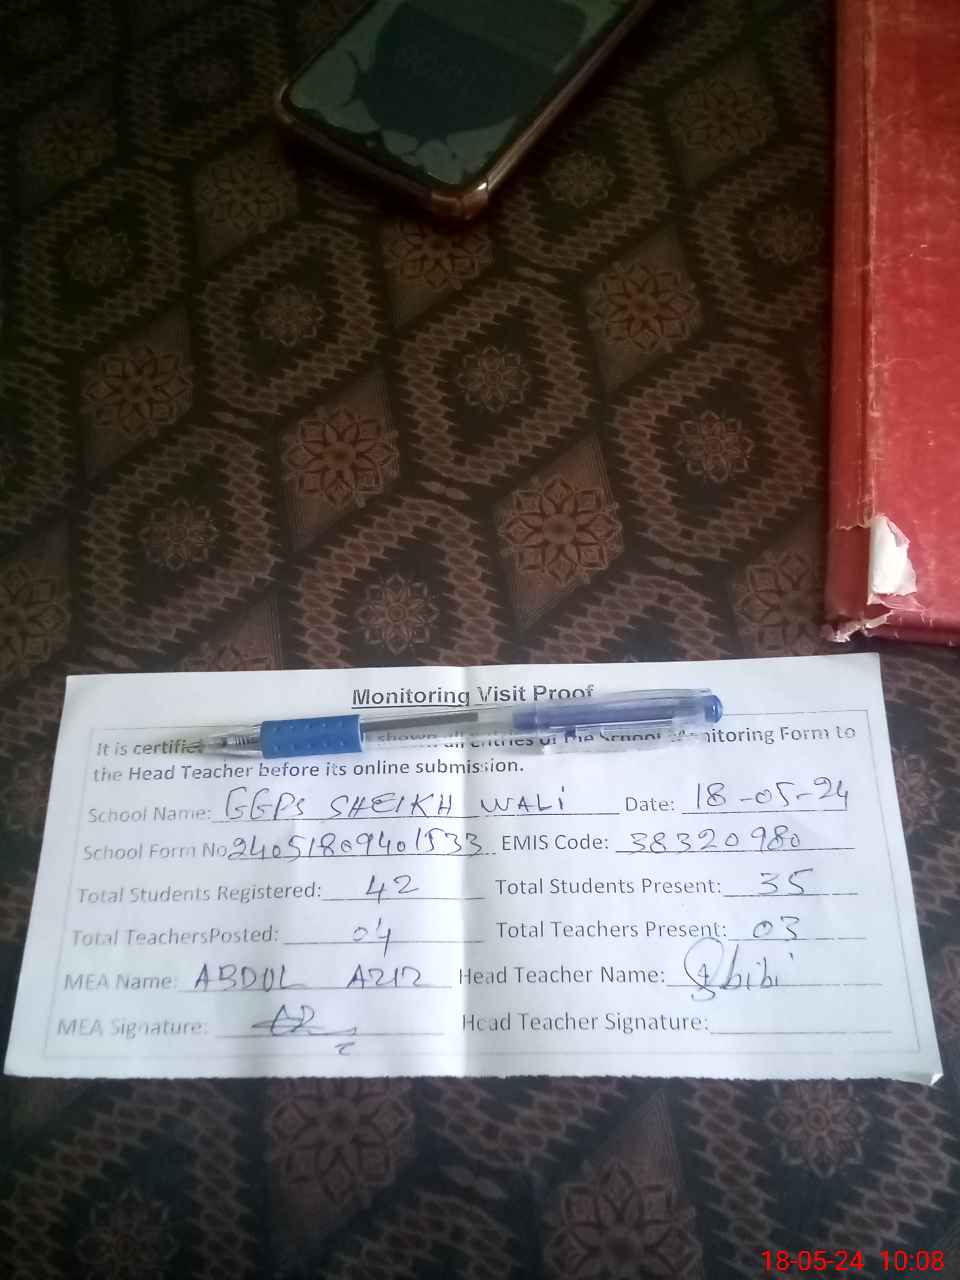 Monitoring Visit Proof
It is certifie shown all entries of the School Monitoring Form to
the Head Teacher before its online submission.
School Name: GGPS SHEIKH WALI Date: 18-05-24
School Form No 24051809401533 EMIS Code: 38320980
Total Students Registered: 42 Total Students Present: 35
Total TeachersPosted: 04 Total Teachers Present: 03
MEA Name: ABDUL AZIZ Head Teacher Name: bibi
MEA Signature: Head Teacher Signature:
18-05-24 10:08